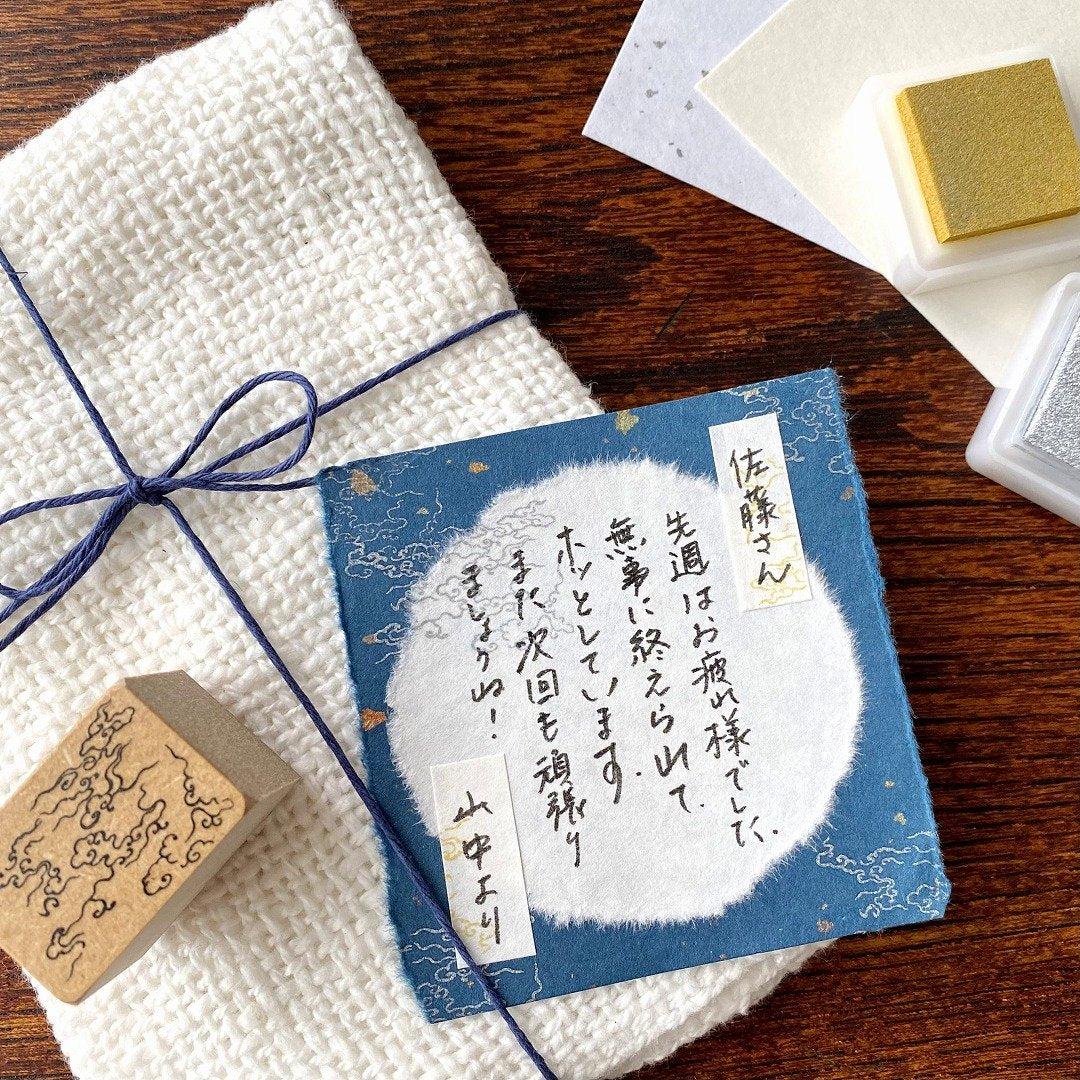 佐藤さん
先週はお疲れ様でした。
無事に終えられて、
ホッとしています。
また次回も頑張り
ましょうね！
山中より